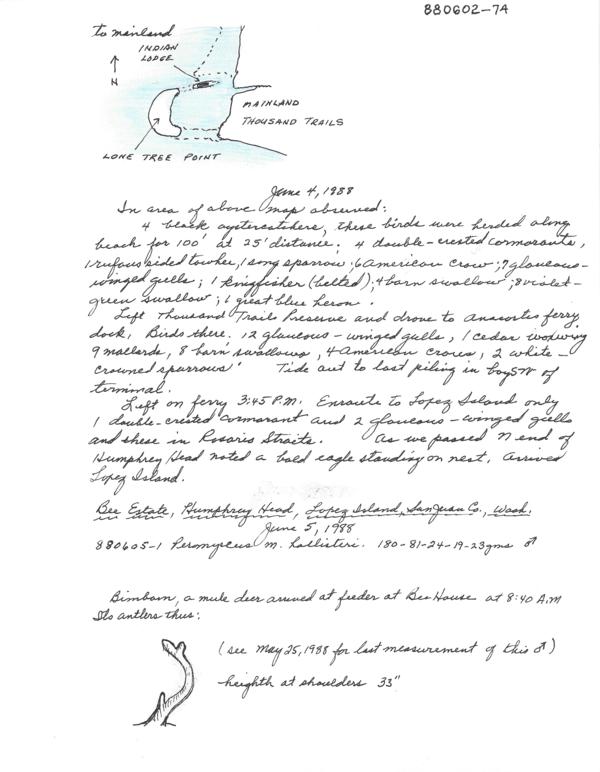 880602-74
to mainland
INDIAN
LODGE
N
MAINLAND
THOUSAND TRAILS
LONE TREE POINT
June 4, 1988
In area of above map observed:
4 black oystercatchers, these birds were herded along
beach for 100' at 25' distance. 4 double-crested cormorants,
1 rufous sided towhee, 1 song sparrow; 6 American crow; 7 glaucous-
winged gulls; 1 kingfisher (belted); 4 barn swallow; 8 violet-
green swallow; 1 great blue heron.
Left Thousand Trails Preserve and drove to Anacortes ferry
dock, Birds there: 12 glaucous-winged gulls, 1 cedar waxwing
9 mallards, 8 barn swallows, 4 American crows, 2 white-
crowned sparrows. Tide out to last piling in bay SW of
terminal.
Left on ferry 3:45 P.M. Enroute to Lopez Island only
1 double-crested cormorant and 2 glaucous-winged gulls
and these in Rosario Straits. As we passed N end of
Humphrey Head noted a bald eagle standing on nest. Arrived
Lopez Island.
Bee Estate, Humphrey Head, Lopez Island, San Juan Co., Wash.
June 5, 1988
880605-1 Peromyscus m. hollisteri. 180-81-24-19-23gms ♂
Bimbam, a mule deer arrived at feeder at Bee House at 8:40 A.M
Its antlers thus:
(see May 25, 1988 for last measurement of this ♂)
heighth at shoulders 33"